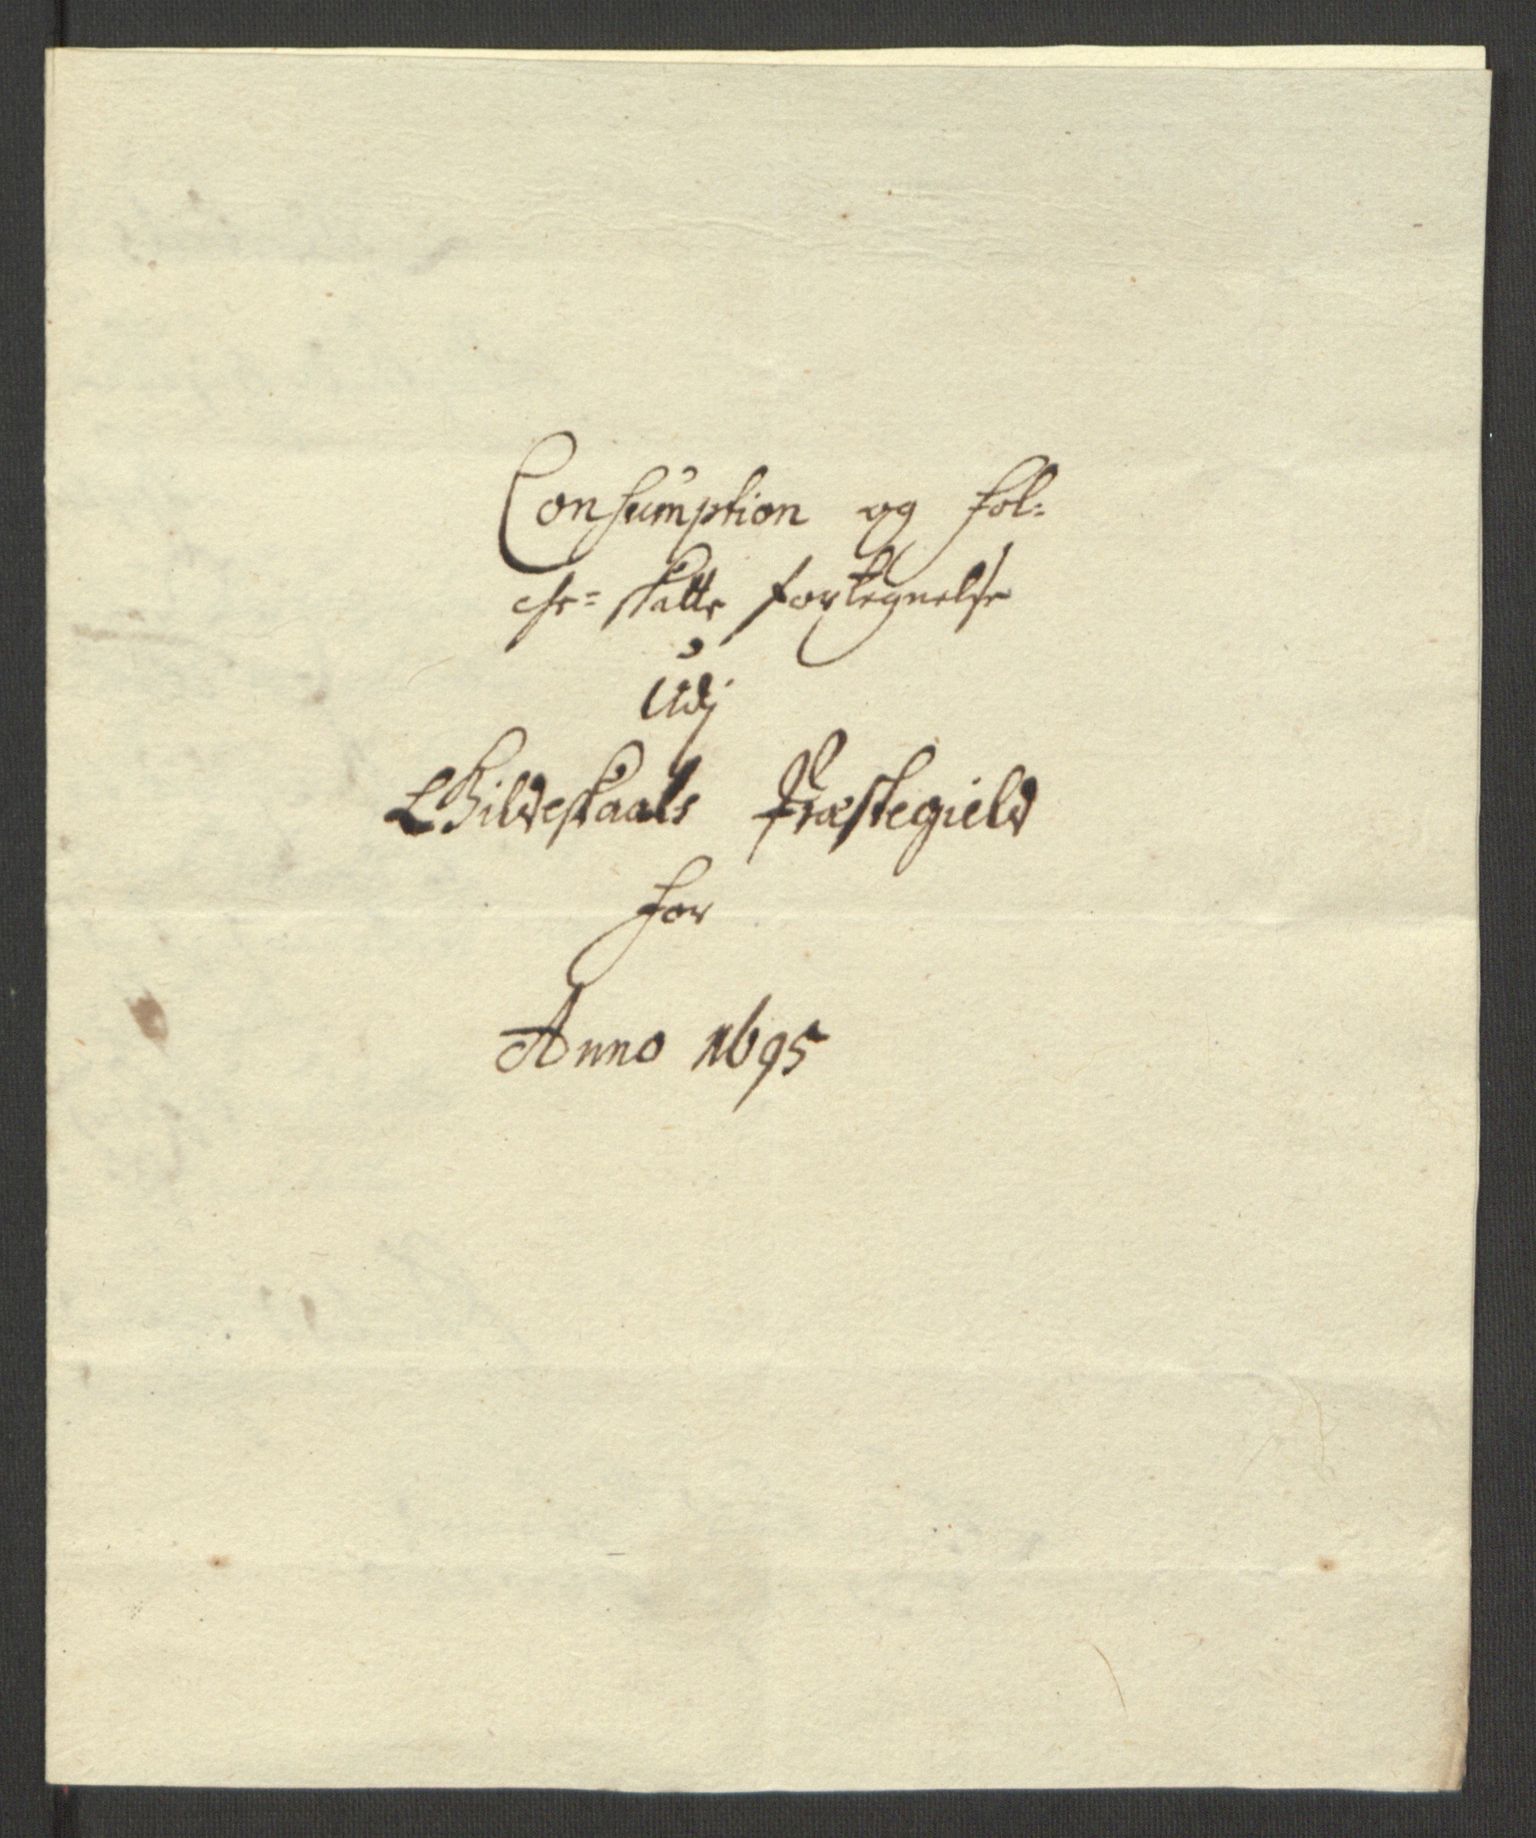 Consumption og fol-
che- skatts fortegnelse
Udj
Gildeskaals Præstegield
for
Anno 1695